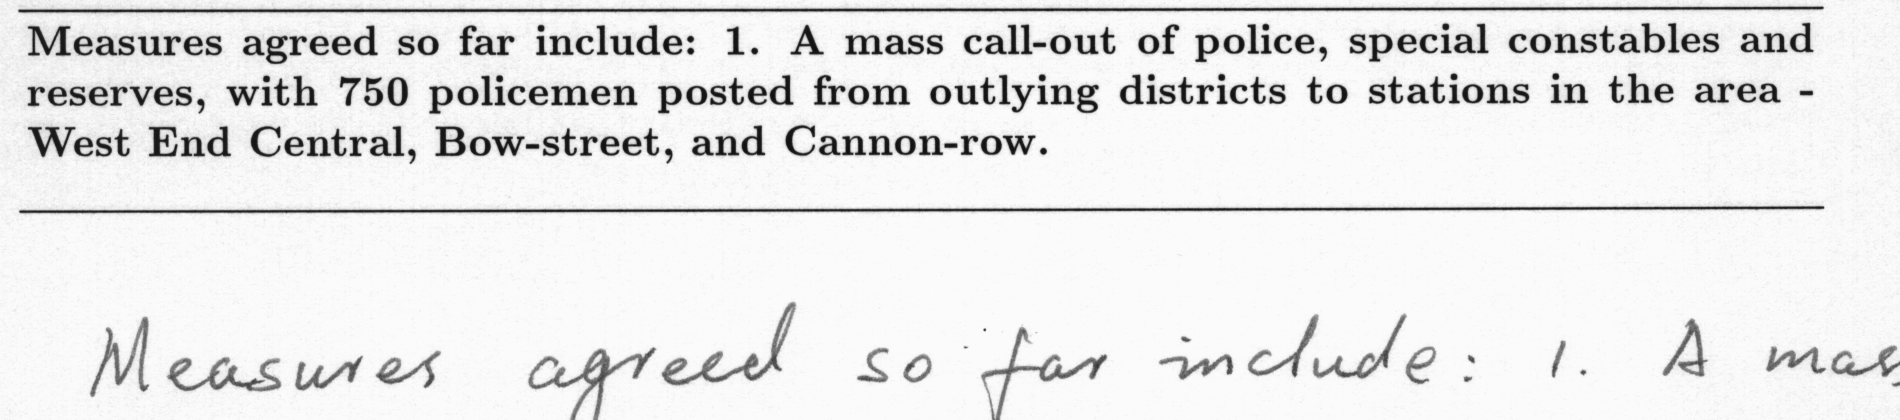 Measures agreed so far include: 1. A mass call-out of police, special constables and
reserves, with 750 policemen posted from outlying districts to stations in the area -
West End Central, Bow-street, and Cannon-row.
Measures agreed so far include: 1. A mass